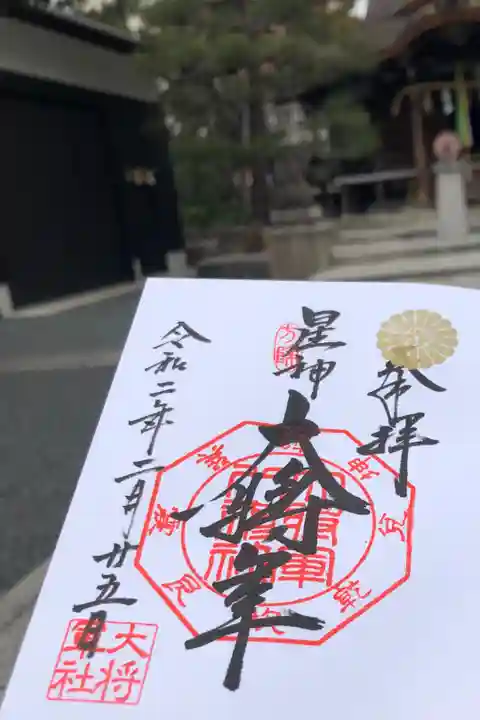 奉拝
星神
方除
大将軍
令和二年二月廿五日
大将
軍社